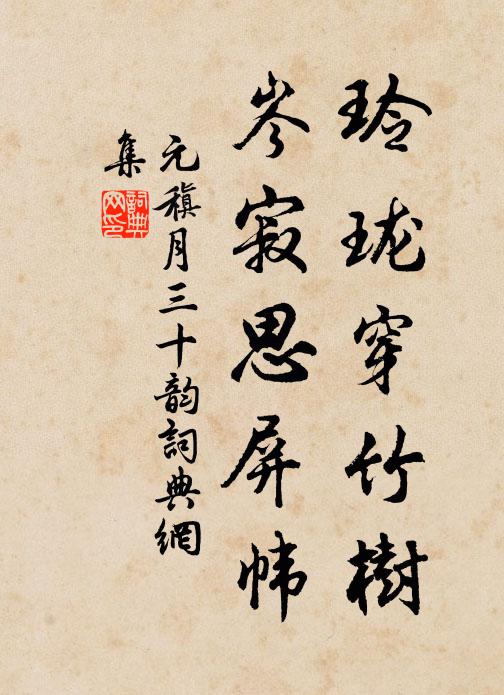 玲珑穿竹樹
岑寂思屏帏
元稹月三十韵詞典網
集
詞典
网印